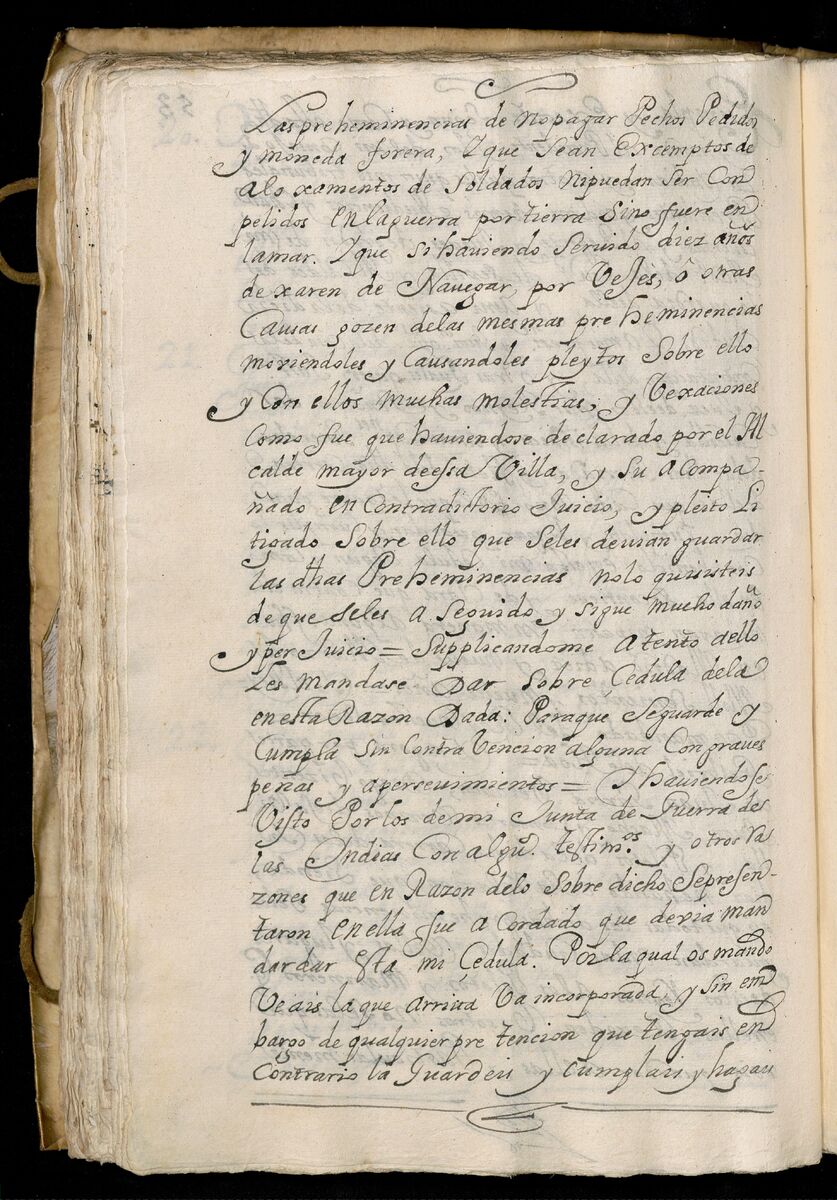 Las preheminencias de no pagar Pechos Pedidos
y moneda forera, Y que sean Excemptos de
aloxamentos de Soldados Nipuedan Ser Con
pelidos Enlaguerra por tierra Sino fuere en
lamar. Y que si haviendo Servido diez años
dexaren de Navegar, por Vejès, ô otras
Causas gozen delas mesmas preheminencias
moviendoles y Causandoles pleytos Sobre ello
y Con ellos muchas molestias, y Vexaciones
Como fue que haviendose declarado por el Al
calde mayor deessa Villa, y Su acompa-
ñado en Contradictorio Juicio, y pleito Li
tigado Sobre ello que Seles devian guardar
las dhas Preheminencias nolo quisisteis
de que Seles a Seguido y sigue mucho daño
y perJuicio = Supplicandome atento dello
Les mandase Dar Sobre Çedula dela
en esta Razon Dada: Paraque Seguarde y
Cumpla Sin Contravencion alguna Con graves
penas y apersevimientos = Y haviendose
Visto Por los de mi Junta de Guerra de
las Yndias Con algũ. testim.os y otros Ra
zones que en Razon delo Sobre dicho Sepresen-
taron en ella fue acordado que devia man
dar dar Esta mi Çedula. Por la qual os mando
Veais la que arriva Va incorporada, y Sin em
bargo de qualquier pretencion que tengais en
Contrario la Guardeis y cumplais y hagais